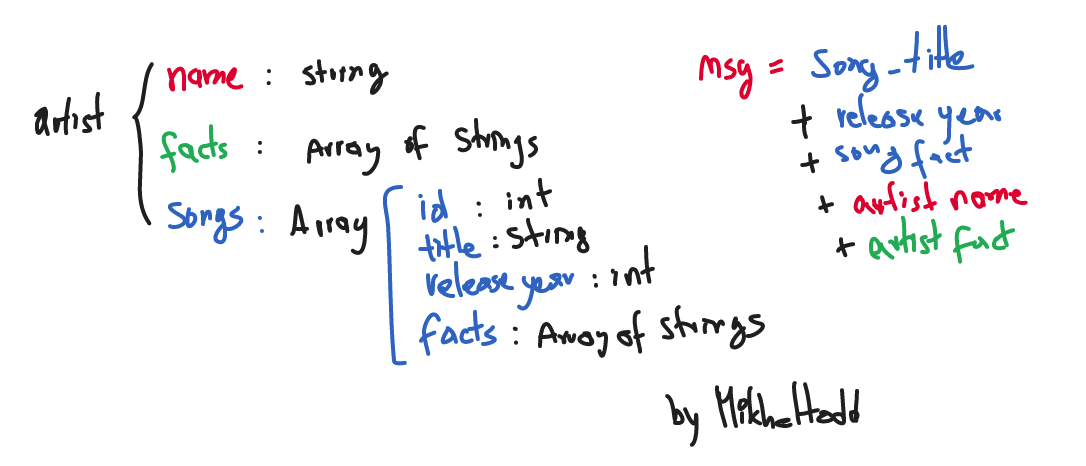 artist
name : string
facts : Array of Strings
Songs : Array
id : int
title : string
release year : int
facts : Array of strings
msg = Song_title
+ release year
+ song fact
+ artist name
+ artist fact
by